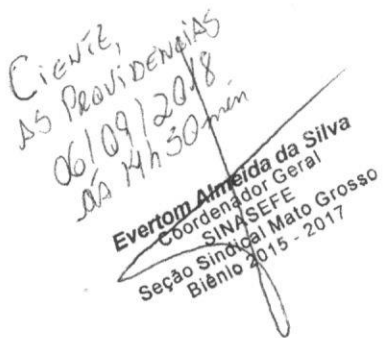 CIENTE,
AS PROVIDENCIAS
06/09/2018
ÀS 14h30min
Evertom Almeida da Silva
Coordenador Geral
SINASEFE
Seção Sindical Mato Grosso
Biênio 2015 - 2017